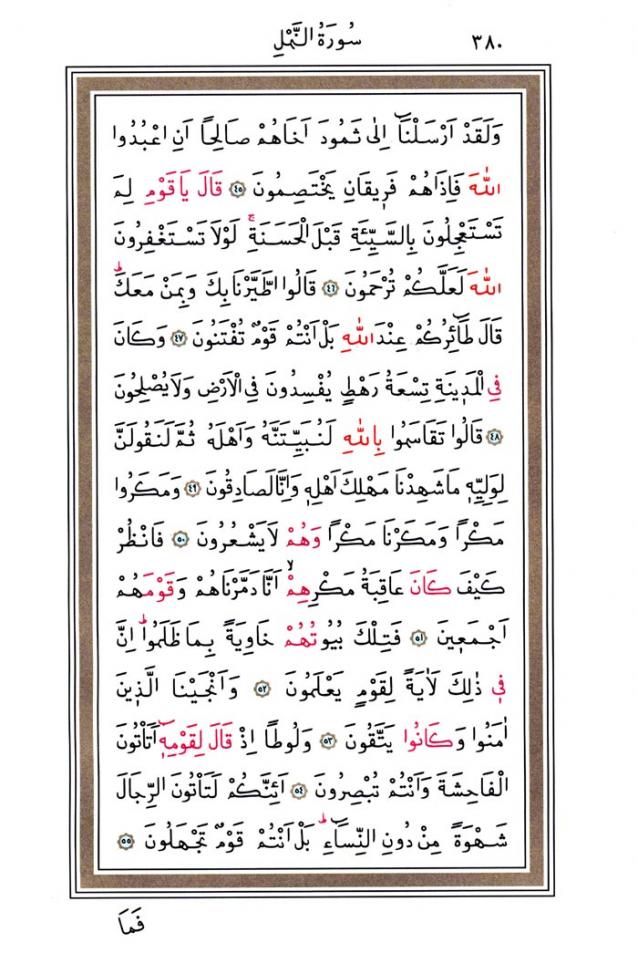 ٣٨٠ سُورَةُ النَّمْلِ
وَلَقَدْ اَرْسَلْنَٓا اِلٰى ثَمُودَ اَخَاهُمْ صَالِحًا اَنِ اعْبُدُوا
اللّٰهَ فَاِذَاهُمْ فَرٖيقَانِ يَخْتَصِمُونَ ﴿٤٥﴾ قَالَ يَاقَوْمِ لِمَ
تَسْتَعْجِلُونَ بِالسَّيِّئَةِ قَبْلَ الْحَسَنَةِۚ لَوْلَا تَسْتَغْفِرُونَ
اللّٰهَ لَعَلَّكُمْ تُرْحَمُونَ ﴿٤٦﴾ قَالُوا اطَّيَّرْنَا بِكَ وَبِمَنْ مَعَكَۜ
قَالَ طَٓائِرُكُمْ عِنْدَ اللّٰهِ بَلْ اَنْتُمْ قَوْمٌ تُفْتَنُونَ ﴿٤٧﴾ وَكَانَ
فِي الْمَدٖينَةِ تِسْعَةُ رَهْطٍ يُفْسِدُونَ فِي الْاَرْضِ وَلَا يُصْلِحُونَ
﴿٤٨﴾ قَالُوا تَقَاسَمُوا بِاللّٰهِ لَنُبَيِّتَنَّهُ وَاَهْلَهُ ثُمَّ لَنَقُولَنَّ
لِوَلِيِّهٖ مَا شَهِدْنَا مَهْلِكَ اَهْلِهٖ وَاِنَّا لَصَادِقُونَ ﴿٤٩﴾ وَمَكَرُوا
مَكْرًا وَمَكَرْنَا مَكْرًا وَهُمْ لَا يَشْعُرُونَ ﴿٥٠﴾ فَانْظُرْ
كَيْفَ كَانَ عَاقِبَةُ مَكْرِهِمْۙ اَنَّا دَمَّرْنَاهُمْ وَقَوْمَهُمْ
اَجْمَعٖينَ ﴿٥١﴾ فَتِلْكَ بُيُوتُهُمْ خَاوِيَةً بِمَا ظَلَمُواۜ اِنَّ
فٖي ذٰلِكَ لَاٰيَةً لِقَوْمٍ يَعْلَمُونَ ﴿٥٢﴾ وَاَنْجَيْنَا الَّذٖينَ
اٰمَنُوا وَكَانُوا يَتَّقُونَ ﴿٥٣﴾ وَلُوطًا اِذْ قَالَ لِقَوْمِهٖٓ اَتَأْتُونَ
الْفَاحِشَةَ وَاَنْتُمْ تُبْصِرُونَ ﴿٥٤﴾ اَئِنَّكُمْ لَتَأْتُونَ الرِّجَالَ
شَهْوَةً مِنْ دُونِ النِّسَٓاءِۜ بَلْ اَنْتُمْ قَوْمٌ تَجْهَلُونَ ﴿٥٥﴾
فَمَا